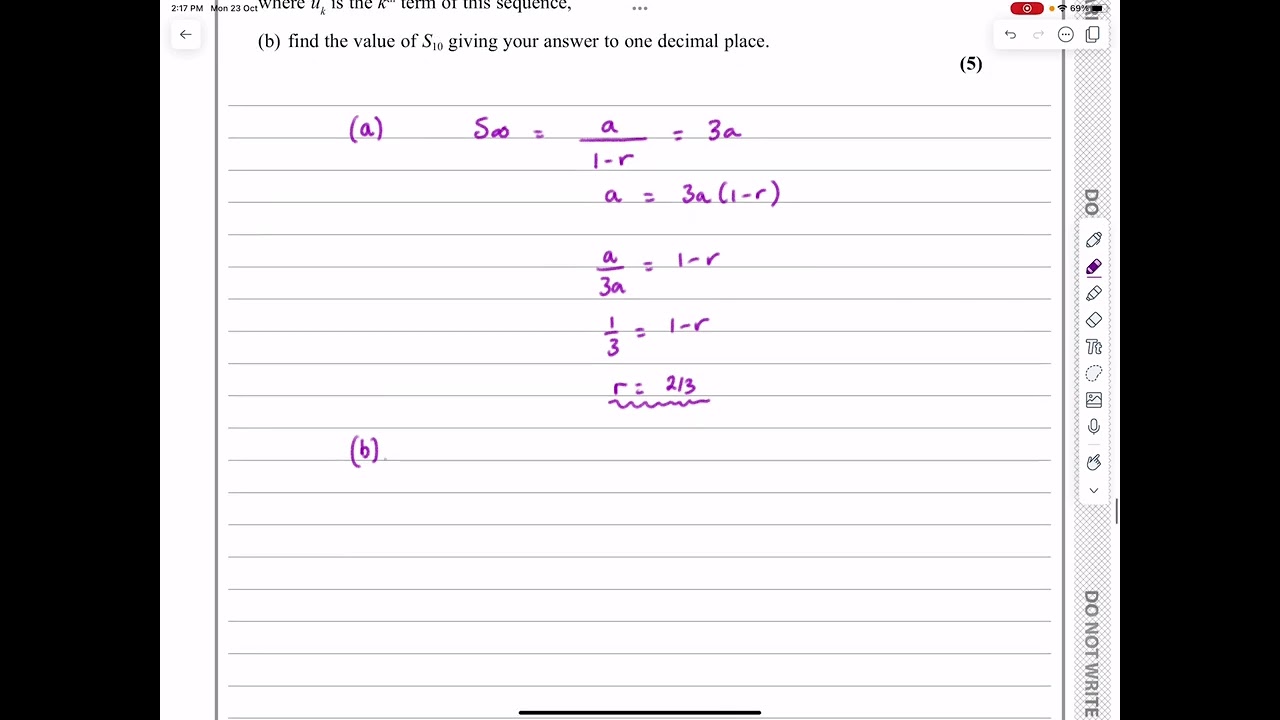 2:17 PM Mon 23 Oct
69%
where u_k is the k^th term of this sequence,
(b) find the value of S_10 giving your answer to one decimal place.
(5)
(a) S∞ = a/(1-r) = 3a
a = 3a(1-r)
a/3a = 1-r
1/3 = 1-r
r = 2/3
(b).
Tt
DO
DO NOT WRITE